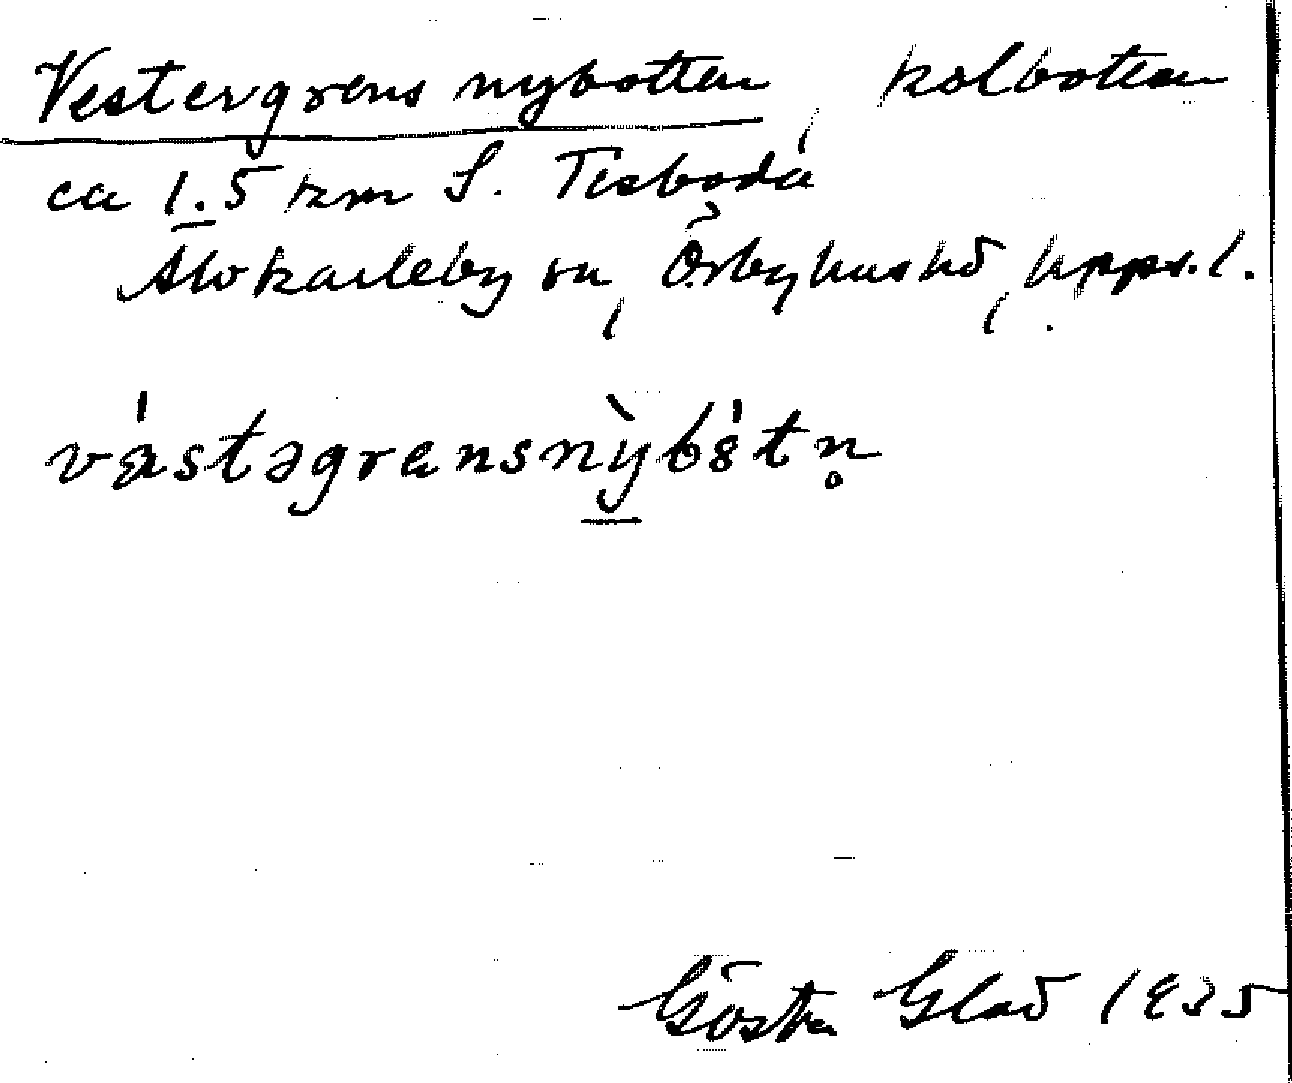 Vestergrens nybotten, kolbotten
ca 1.5 km S. Tisboda
Älvkarleby sn, Örbyhus hd, Upps.l.
västəgrensnỳbåtn̥
Gösta Glad 1935